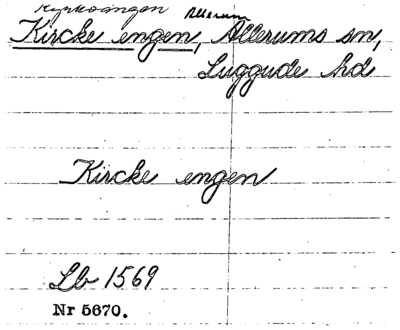 Kyrkoängen Allerum
Kircke engen, Allerums sn,
Luggude hd
Kircke engen
Lb 1569
Nr 5670.